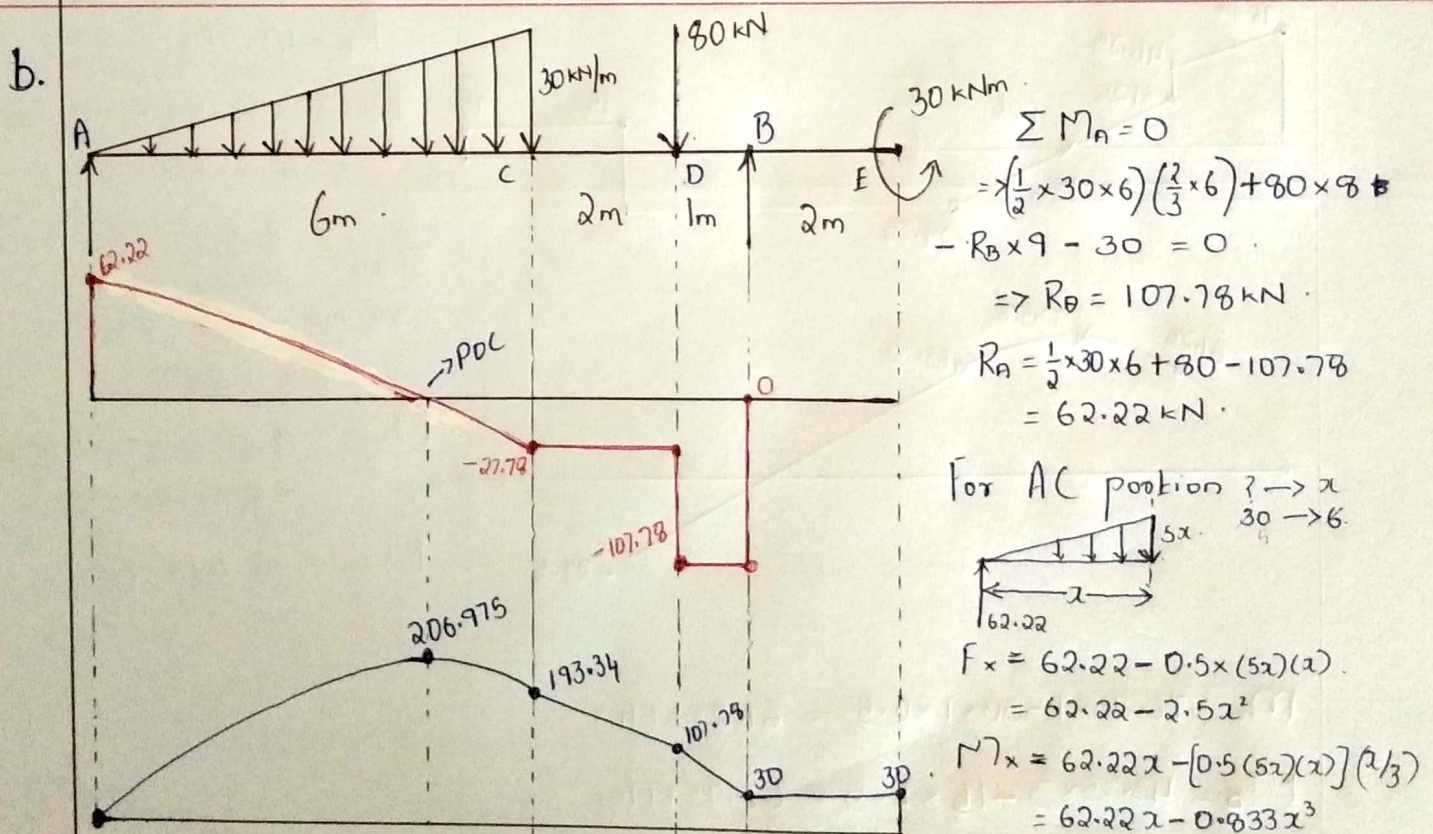 b.
80 kN
30 kN/m
30 kNm
A
B
C
D
E
6m
2m
1m
2m
62.22
→POC
0
-27.78
-107.78
206.975
193.34
107.78
30
30
Σ MA = 0
=> (1/2 × 30 × 6) (2/3 × 6) + 80 × 8
- RB × 9 - 30 = 0
=> RB = 107.78 kN
RA = 1/2 × 30 × 6 + 80 - 107.78
= 62.22 kN
For AC portion ? → x
30 → 6
5x
x
62.22
Fx = 62.22 - 0.5 × (5x)(x)
= 62.22 - 2.5x²
Mx = 62.22x - [0.5(5x)(x)](x/3)
= 62.22x - 0.833x³